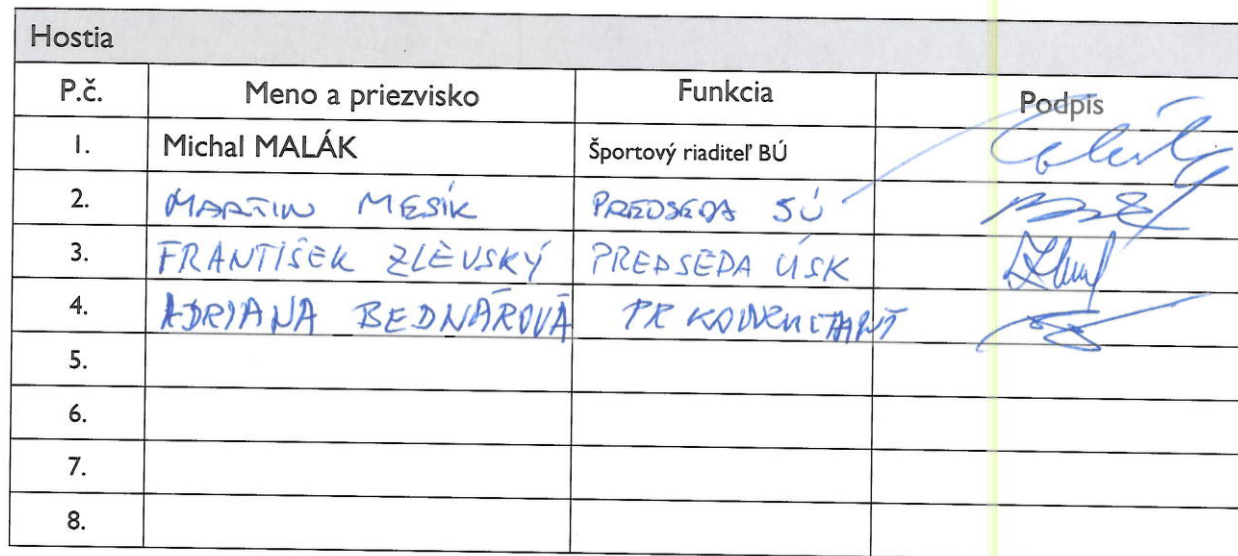 Hostia
P.č. Meno a priezvisko Funkcia Podpis
1. Michal MALÁK Športový riaditeľ BÚ
2. MARTIN MESÍK PREDSEDA SÚ
3. FRANTIŠEK ZLEVSKÝ PREDSEDA ÚSK
4. ADRIANA BEDNÁROVÁ PR
5.
6.
7.
8.